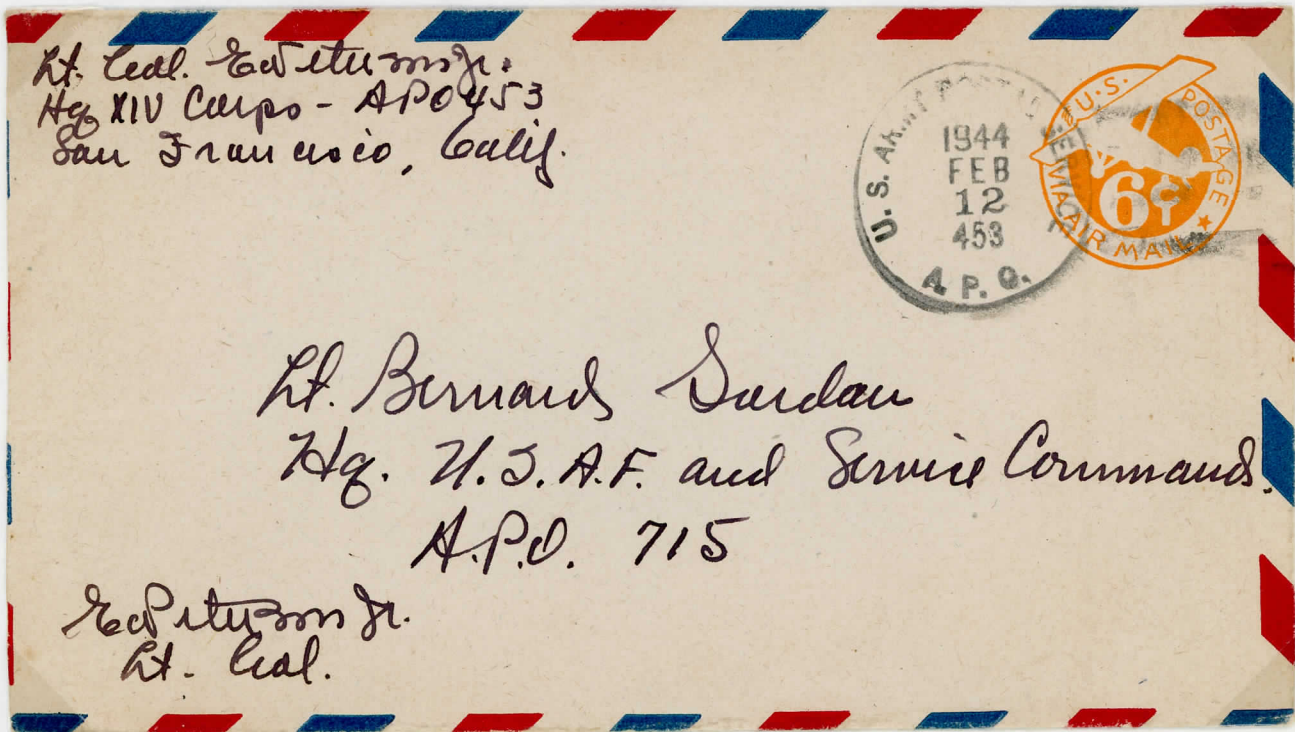 Lt. Col. Ed Peterson Jr.
Hq XIV Corps - APO 453
San Francisco, Calif.
U.S. ARMY POSTAL SERVICE
1944
FEB
12
453
A.P.O.
U.S. POSTAGE
6¢
VIA AIR MAIL
Lt. Bernard
Hq. U.S.A.F. and Service Command.
A.P.O. 715
Ed Peterson Jr.
Lt. Col.